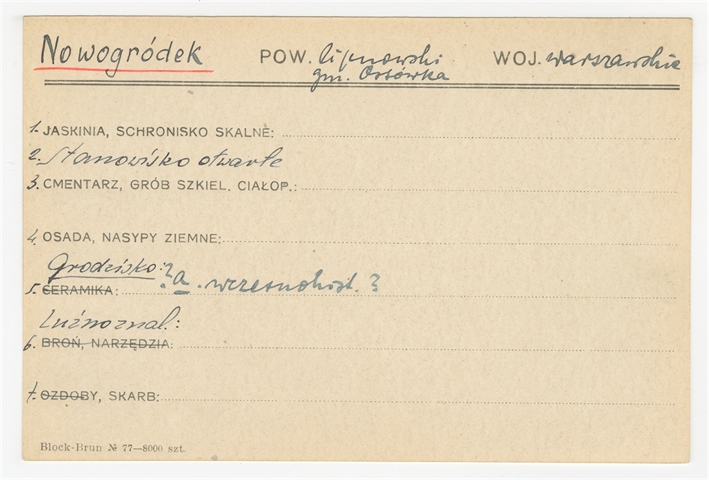 Nowogródek POW. lipnowski WOJ. warszawskie
gm. Ossówka
1. JASKINIA, SCHRONISKO SKALNE:
2. Stanowisko otwarte
3. CMENTARZ, GRÓB SZKIEL. CIAŁOP.:
4. OSADA, NASYPY ZIEMNE:
Grodzisko: ? a. wczesnohist. 3
5. CERAMIKA:
Luźno znal.:
6. BROŃ, NARZĘDZIA:
7. OZDOBY, SKARB:
Block-Brun № 77—8000 szt.